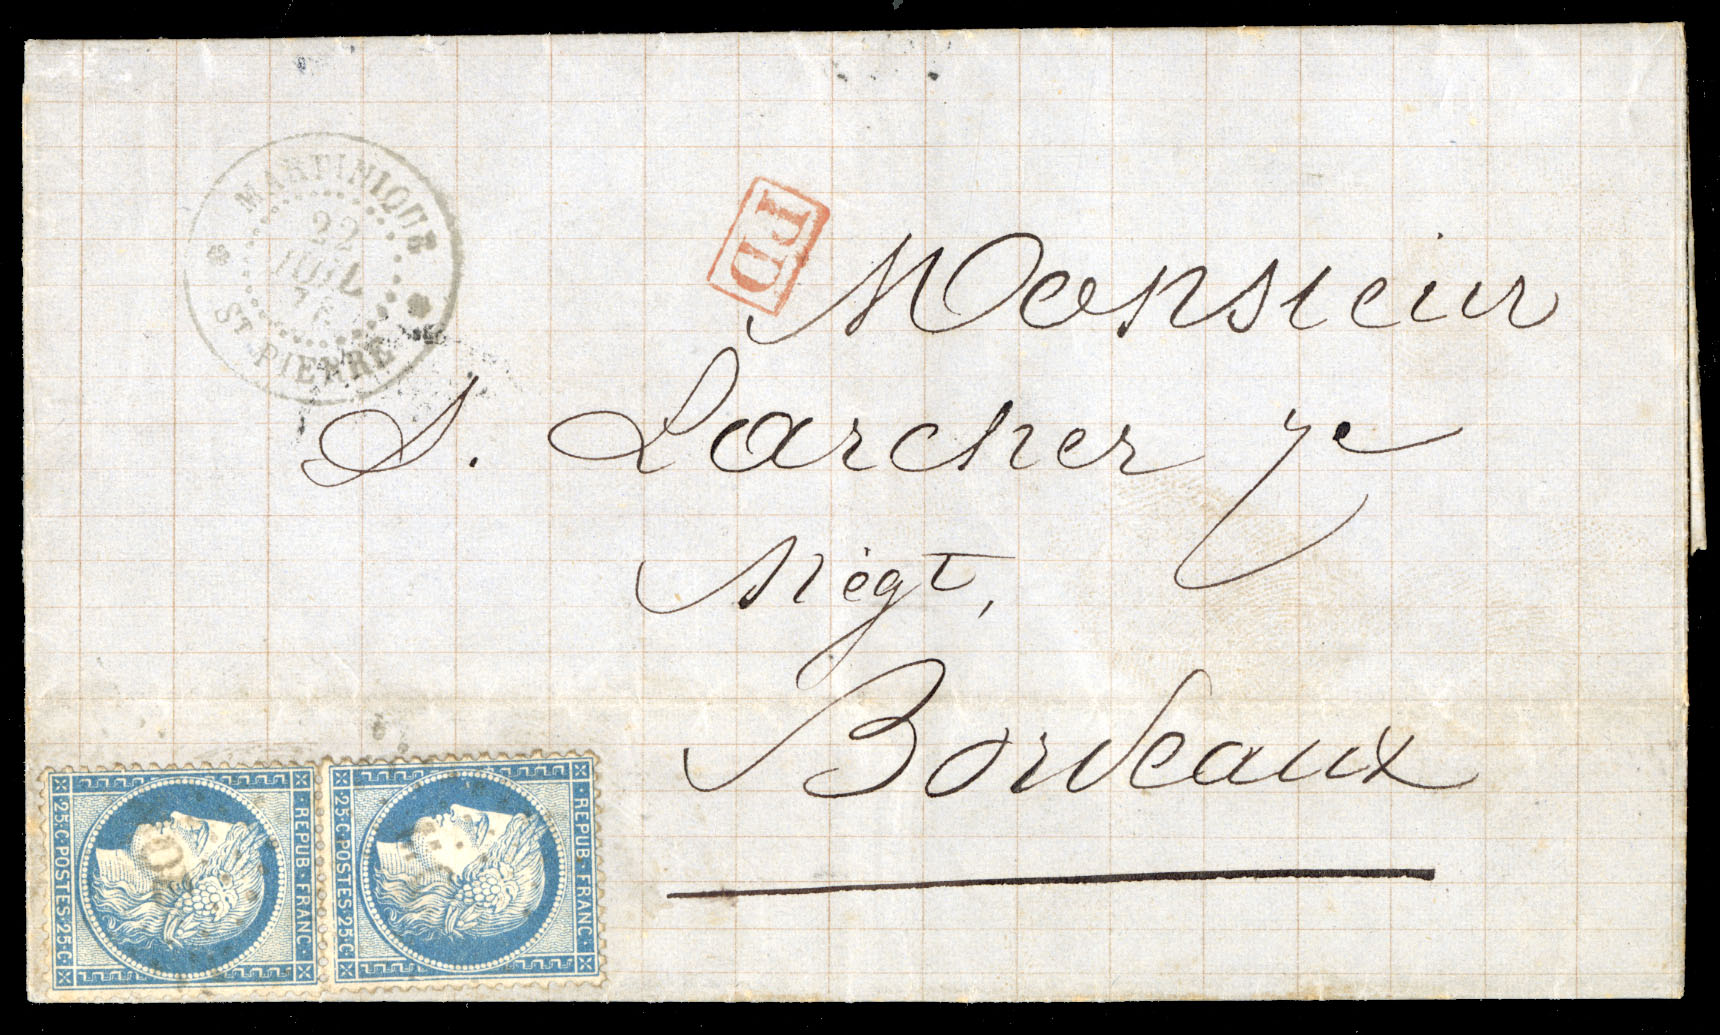 MARTINIQUE
22
JUIL
76
ST. PIERRE
PD
Monsieur
S. Larcher Je
Négt,
Bordeaux
REPUB · FRANC ·
25 · C · POSTES · 25 · C
REPUB · FRANC ·
25 · C · POSTES · 25 · C